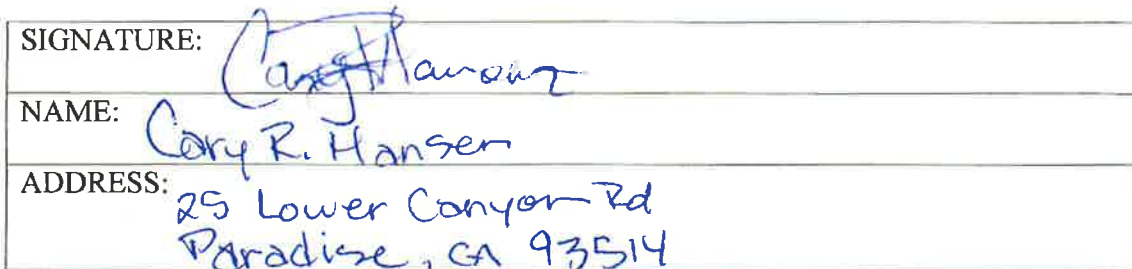 SIGNATURE: Cary Hansen
NAME: Cary R. Hansen
ADDRESS: 25 Lower Canyon Rd
Paradise, CA 93514